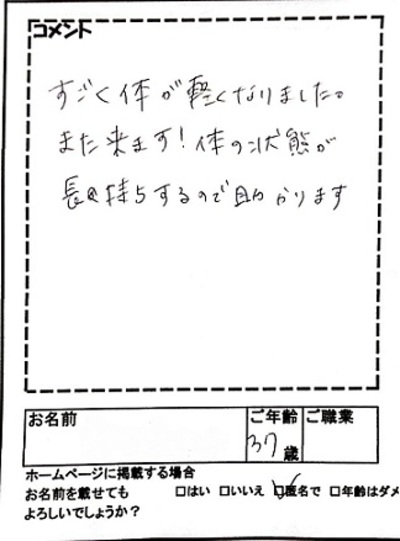 コメント
すごく体が軽くなりました。
また来ます!体の状態が
長く持ちするので助かります
お名前
ご年齢
ご職業
37歳
ホームページに掲載する場合
お名前を載せても
よろしいでしょうか?
□はい □いいえ ☑匿名で □年齢はダメ